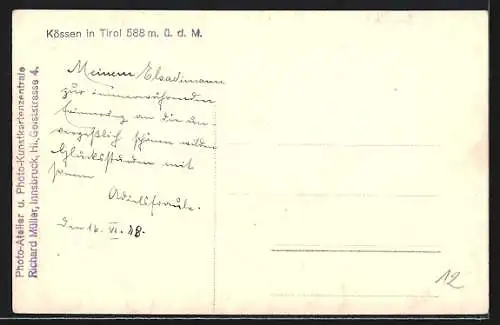 Kössen in Tirol 588 m. ü. d. M.
Photo-Atelier u. Photo-Kunstkartenzentrale
Richard Müller, Innsbruck, Hl. Geiststrasse 4.
Meinem
zur immerwährenden
Erinnerung an die un-
vergeßlich schönen
Glücksstunden mit
den 16. VI. 48.
12